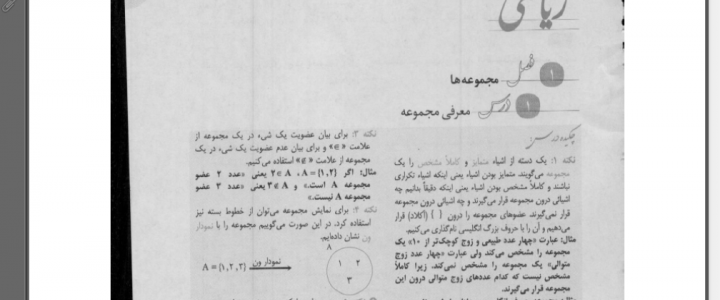 ریاضی
فصل ۱ مجموعه‌ها
درس ۱ معرفی مجموعه
چکیده درس:
نکته ۱: یک دسته از اشیاء متمایز و کاملاً مشخص را یک
مجموعه می‌گویند. متمایز بودن اشیاء یعنی اینکه اشیاء تکراری
نباشند و کاملاً مشخص بودن اشیاء یعنی اینکه دقیقاً بدانیم چه
اشیائی درون مجموعه قرار می‌گیرند و چه اشیائی درون مجموعه
قرار نمی‌گیرند. عضوهای مجموعه را درون { } (آکلاد) قرار
می‌دهیم و آن را با حروف بزرگ انگلیسی نام‌گذاری می‌کنیم.
مثال: عبارت «چهار عدد طبیعی و زوج کوچک‌تر از ۱۰» یک
مجموعه را مشخص می‌کند ولی عبارت «چهار عدد زوج
متوالی» یک مجموعه را مشخص نمی‌کند. زیرا کاملاً
مشخص نیست که کدام عددهای زوج متوالی درون این
مجموعه قرار می‌گیرند.
نکته ۲: برای بیان عضویت یک شیء در یک مجموعه از
علامت «∈» و برای بیان عدم عضویت یک شیء در یک
مجموعه از علامت «∉» استفاده می‌کنیم.
مثال: اگر A = {۱,۲} ، ۲ ∈ A یعنی «عدد ۲ عضو
مجموعه A است.» و ۳ ∉ A یعنی «عدد ۳ عضو
مجموعه A نیست.»
نکته ۳: برای نمایش مجموعه می‌توان از خطوط بسته نیز
استفاده کرد. در این صورت می‌گوییم مجموعه را با نمودار
ون نشان داده‌ایم.
A
A = {۱,۲,۳} نمودار ون
۱ ۲
۳